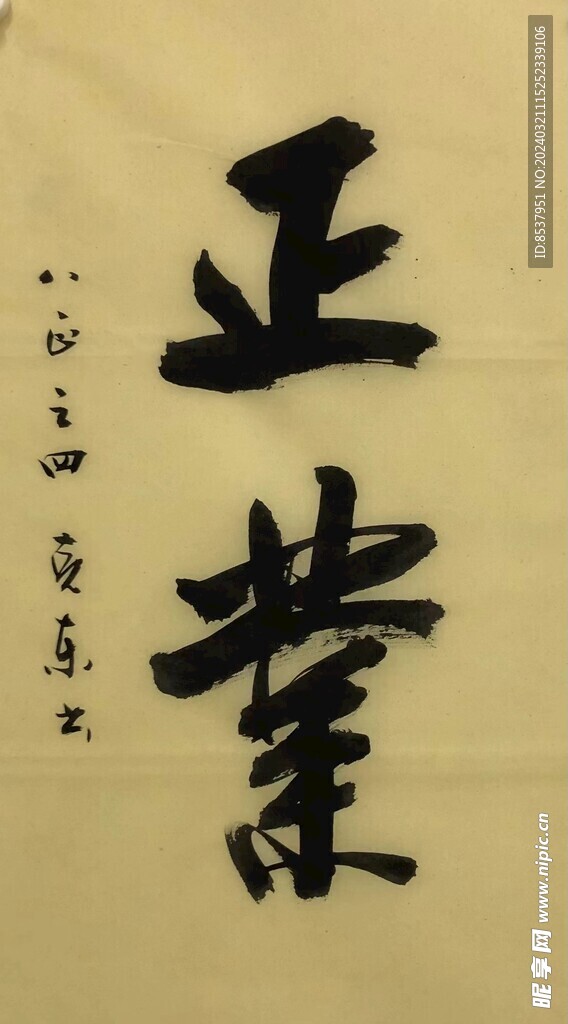 正業
八正之四 克东书
ID:8537951 NO:20240321115252339106
昵享网 www.nipic.cn